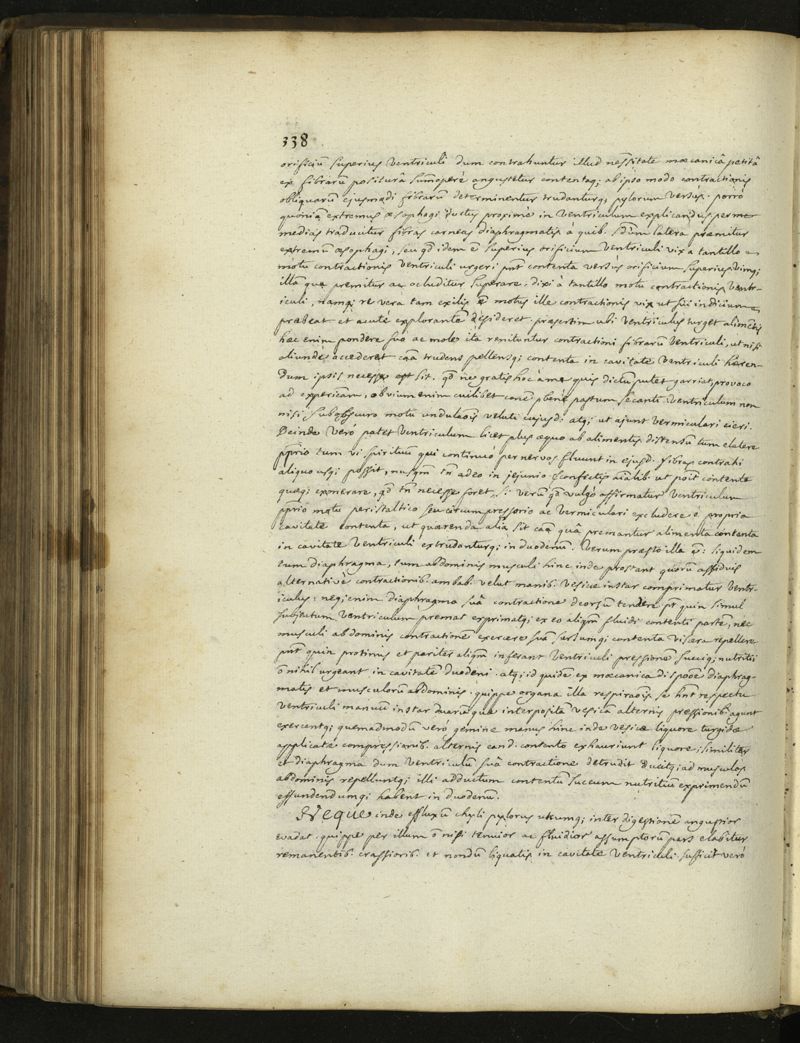 338
orificiũ superius Ventriculi dum contrahuntur illud neẽssitate mæcanicâ petitâ
ex fibrarũ positurâ sumoperè angustetur contentaq; ab ipso modo contractionis
obliquarũ ejusmodi fibrarũ determinentur trudanturq; pylorum versùs. porrò
quoniã extremus œsophagi ductus proximè in Ventriculum explicandus per inter
medias traducitur fibras carneas diaphragmatis à quib. sdũm latera præmitur
extremũ œsophagi, seu qd idem ẽ superius orificium Ventriculi vix a tantillo
motu contractionis Ventriculi urgeri pñt contenta versùs orificium superius
illũ quæ premitur ac occluditur superare. dixi à tantillo motu contractionis Ventr-
iculi, namq; re vera tam exilis ẽ motus ille contractionis vix ut sui indicium
præbeat et acutè explorantẽ desideret. præsertim ubi Ventriculus turget alimẽtis
hæc enim pondere suo ac mole ita renituntur contractioni fibrarũ Ventriculi, ut nisi
aliunde accederet caã trudens pellensq; contenta in cavitate Ventriculi hæren-
dum ipsis necesse sit. qd ne gratis hoc à me quis dictũ putet provoco
ad experiẽam, obvium enim cuilibet canẽ bene pastum secanti Ventriculum non
nisi subobscuro motu undulaois veluti cujusd: atq; ut ajunt Vermiculari cieri.
Deinde verò patet Ventriculum licet plus æquo ab alimentis distensũ tum elatere
pprio tum vi spirituũ qui continuò per nervos fluunt in ejusd. fibras contrahi
aliquousq; possit, nusqm tñ adeo in jejunio confectis aialib. ut poit contenta
quæq; exonerare, qd tñ necesse foret, si verũ qd vulgò affirmatur Ventriculum
pprio motu peristaltico seu circumpressorio ac Vermiculari excludere è propria
cavitate contenta, ut quærenda alia sit caã quâ premantur alimenta contenta
in cavitate Ventriculi extrudanturq; in duodenũ. Verum præstò illa ẽ: siquidem
tum diaphragma, tum abdominis musculi hinc inde prostant quorũ assiduis
alternativè contractionib. ambab. velut manib. Vesicæ instar comprimatur Ventr-
iculus: neq; enim diaphragma suâ contractione deorsũ tendere pt quin simul
subjectum Ventriculum premat exprimatq; ex eo aliqm fluidi contenti partẽ, nec
musculi abdominis contractionẽ exercere suã sursumq; contenta viscera repellere
pñt quin protinus et pariter aliqm inferant Ventriculi pressionẽ succiq; nutritii
õ nihil urgeant in cavitatẽ duodeni. atq; id quidẽ ex mæcanica dispõoe diaphrag-
matis et musculorũ abdominis. quippe organa illa respiraõis se hñt respectu
Ventriculi manuũ instar duarũ quæ interpositã vesicã alternis pressionib. agunt
exercentq; quemadmodũ verò geminæ manus hinc inde vesicæ liquore turgidæ
applicatæ compressionib. alternis eand. contento exhauriunt liquore, similiter
et diaphragma dum Ventriculũ suâ contractione detrudit ducitq; ad musculos
abdominis repelluntq; illi adductum contentũ succum nutritiũ exprimendũ
effundendumq; habent in duodenũ.
Neque inde effluxũ chyli pylorus utcumq; inter digestionẽ angustior
evadat. quippe per illum õ nisi tenuior ac fluidior assumptorũ pars elabitur
remanentib. crassiorib. et nondũ liquatis in cavitate Ventriculi. sufficit verò